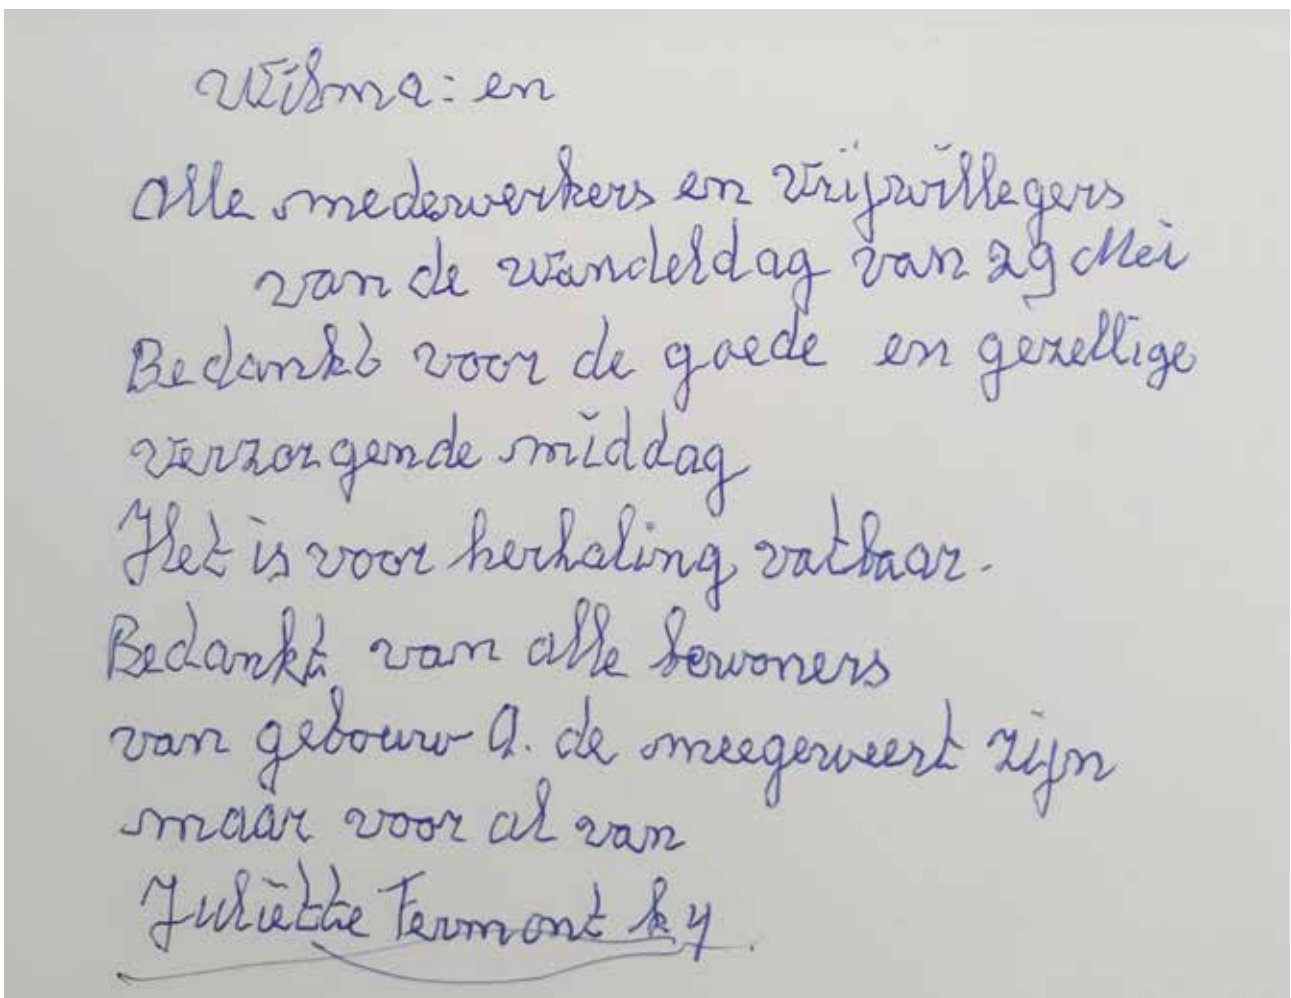 Wilma: en
Alle medewerkers en vrijwillegers
van de wandeldag van 29 Mei
Bedankt voor de goede en gezellige
verzorgende middag
Het is voor herhaling vatbaar.
Bedankt van alle bewoners
van gebouw A. de meegeweest zijn
maar voor al van
Juliëtte Fermont k 4.